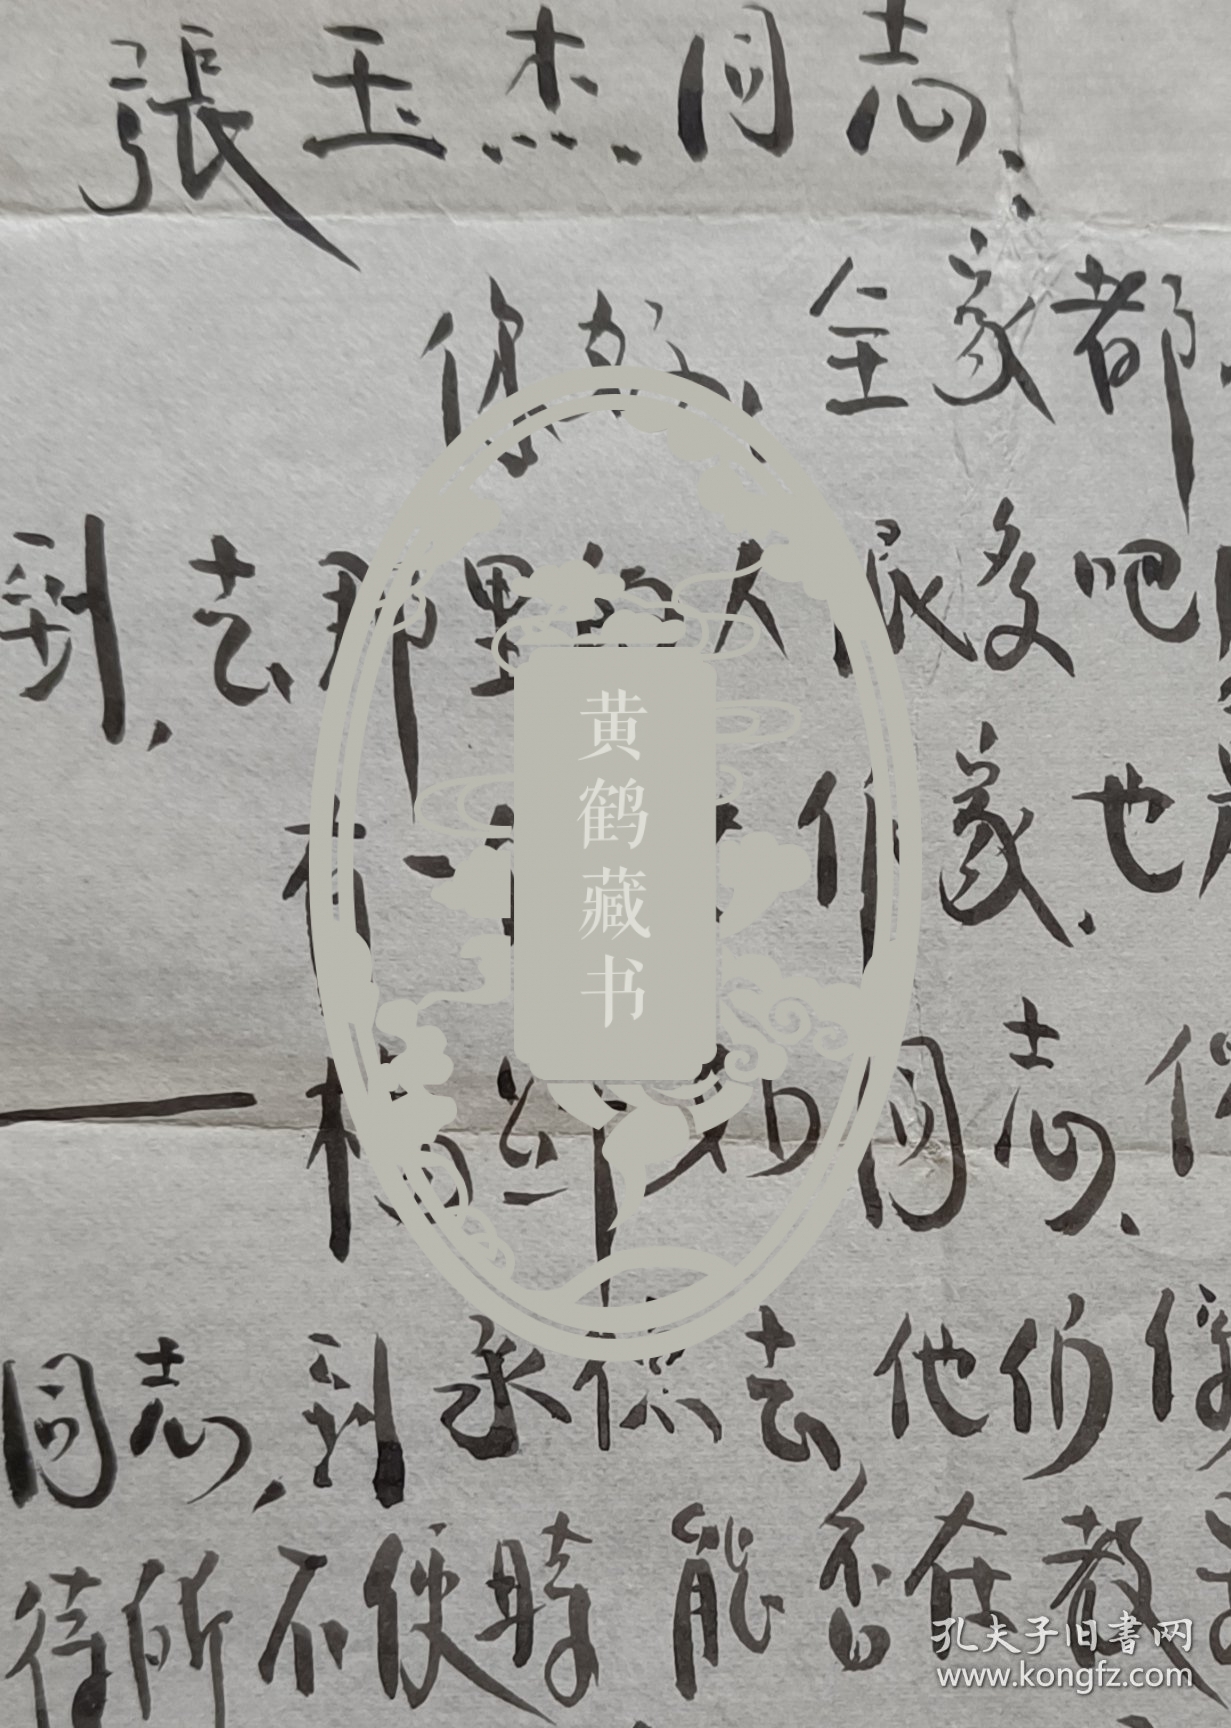 張玉杰同志：
你好、全家都
到，去那里的人很多吧
有一 们家、也
一楊 同志、
同志，到承德去、他们
待所不便時 能否在教
黄鹤藏书
孔夫子旧書网
www.kongfz.com